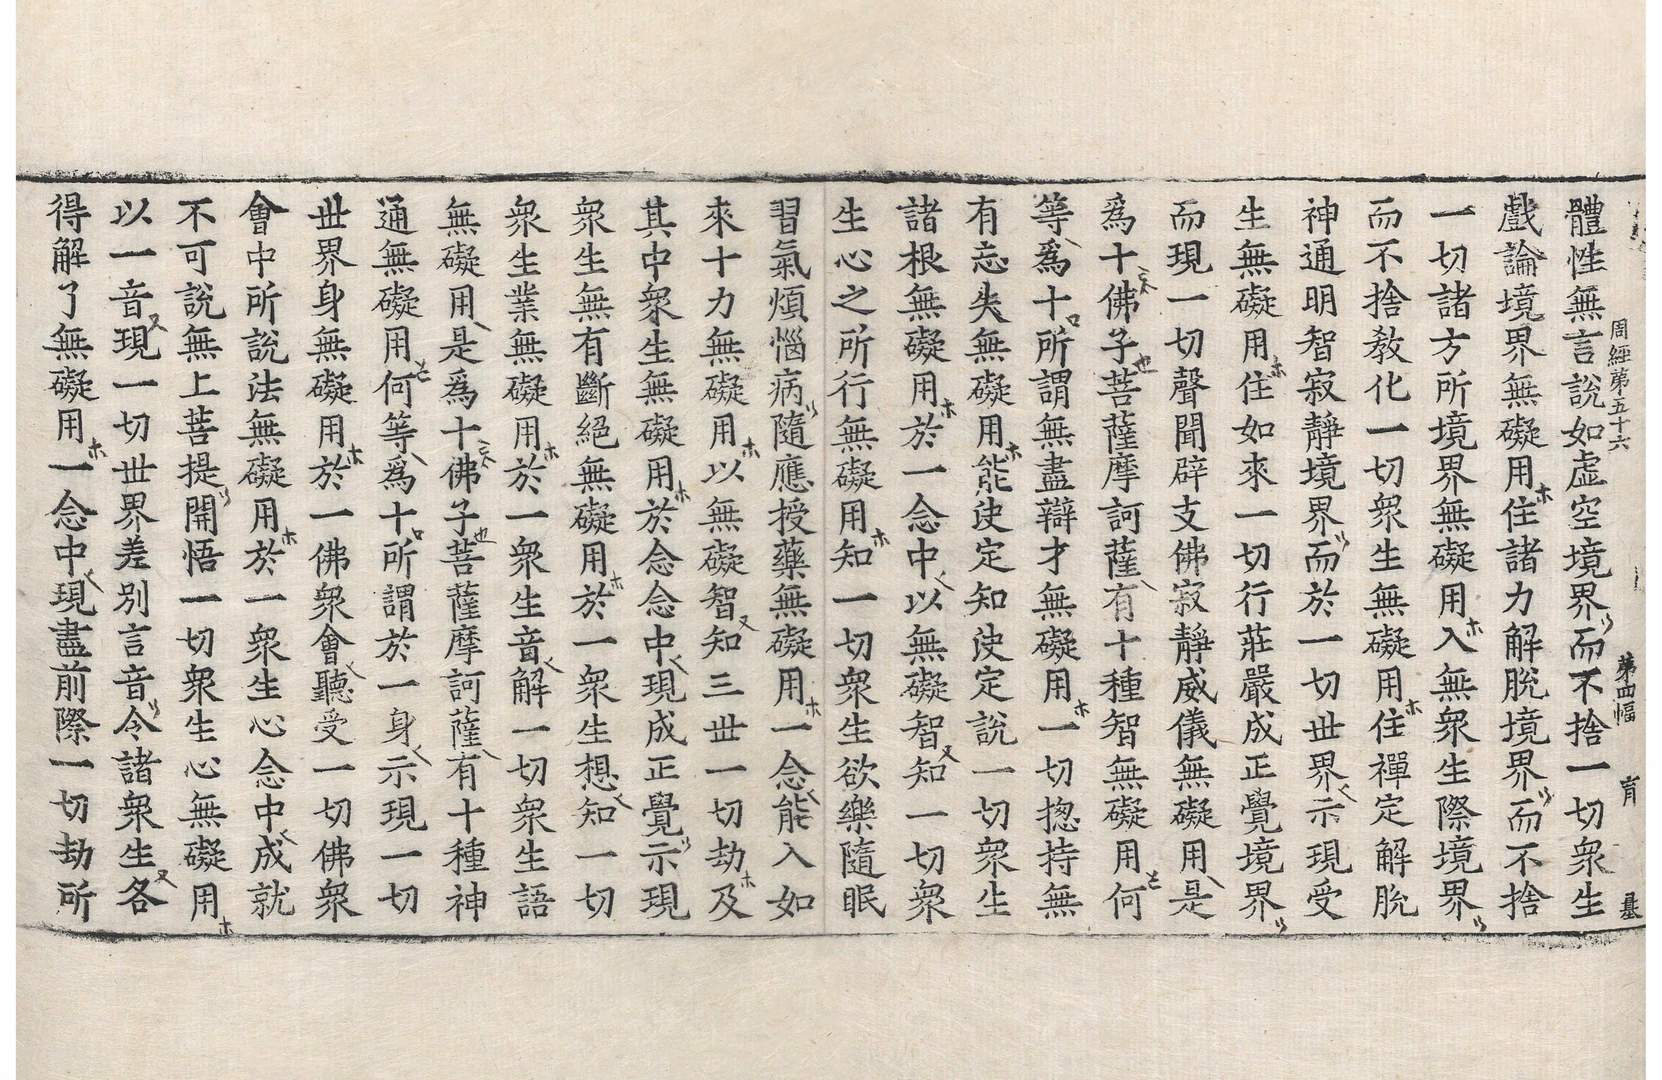 周經第五十六 第四幅 育
體性無言說如虛空境界而不捨一切衆生
戲論境界無礙用住諸力解脫境界而不捨
一切諸方所境界無礙用入無衆生際境界
而不捨教化一切衆生無礙用住禪定解脫
神通明智寂靜境界而於一切世界示現受
生無礙用住如來一切行莊嚴成正覺境界
而現一切聲聞辟支佛寂靜威儀無礙用是
爲十佛子菩薩摩訶薩有十種智無礙用何
等爲十所謂無盡辯才無礙用一切揔持無
有忘失無礙用能決定知決定說一切衆生
諸根無礙用於一念中以無礙智知一切衆
生心之所行無礙用知一切衆生欲樂隨眠
習氣煩惱病隨應授藥無礙用一念能入如
來十力無礙用以無礙智知三世一切劫及
其中衆生無礙用於念念中現成正覺示現
衆生無有斷絕無礙用於一衆生想知一切
衆生業無礙用於一衆生音解一切衆生語
無礙用是爲十佛子菩薩摩訶薩有十種神
通無礙用何等爲十所謂於一身示現一切
世界身無礙用於一佛衆會聽受一切佛衆
會中所說法無礙用於一衆生心念中成就
不可說無上菩提開悟一切衆生心無礙用
以一音現一切世界差別言音令諸衆生各
得解了無礙用一念中現盡前際一切劫所